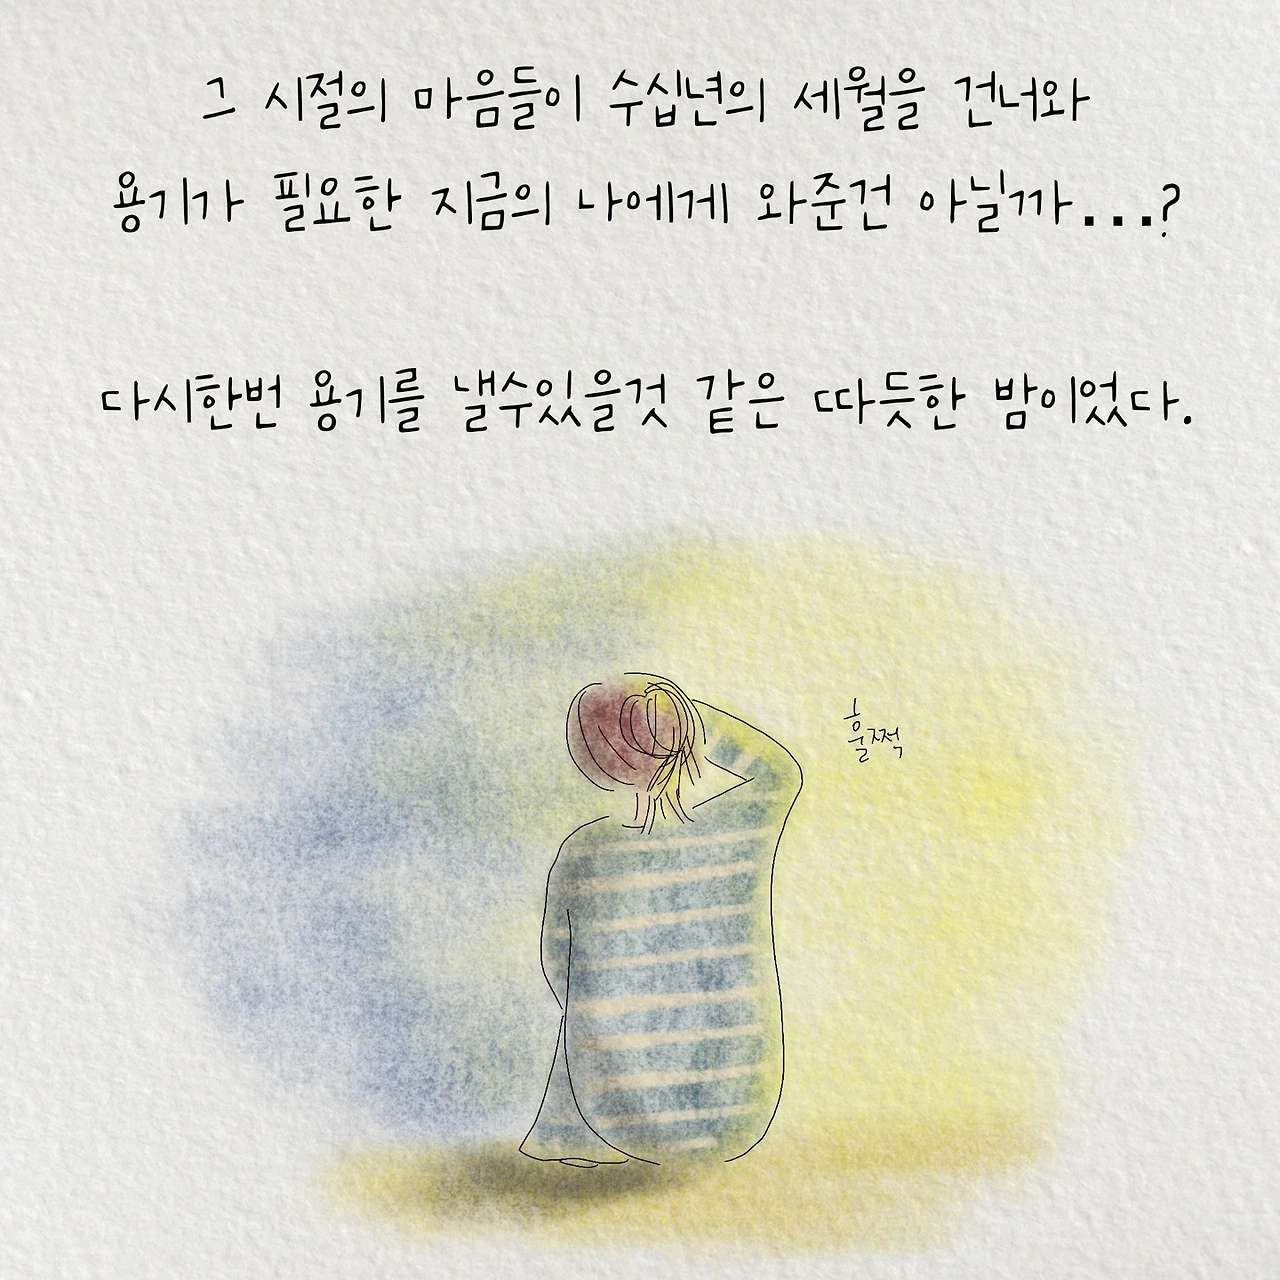 그 시절의 마음들이 수십년의 세월을 건너와
용기가 필요한 지금의 나에게 와준건 아닐까...?
다시한번 용기를 낼수있을것 같은 따듯한 밤이었다.
훌쩍